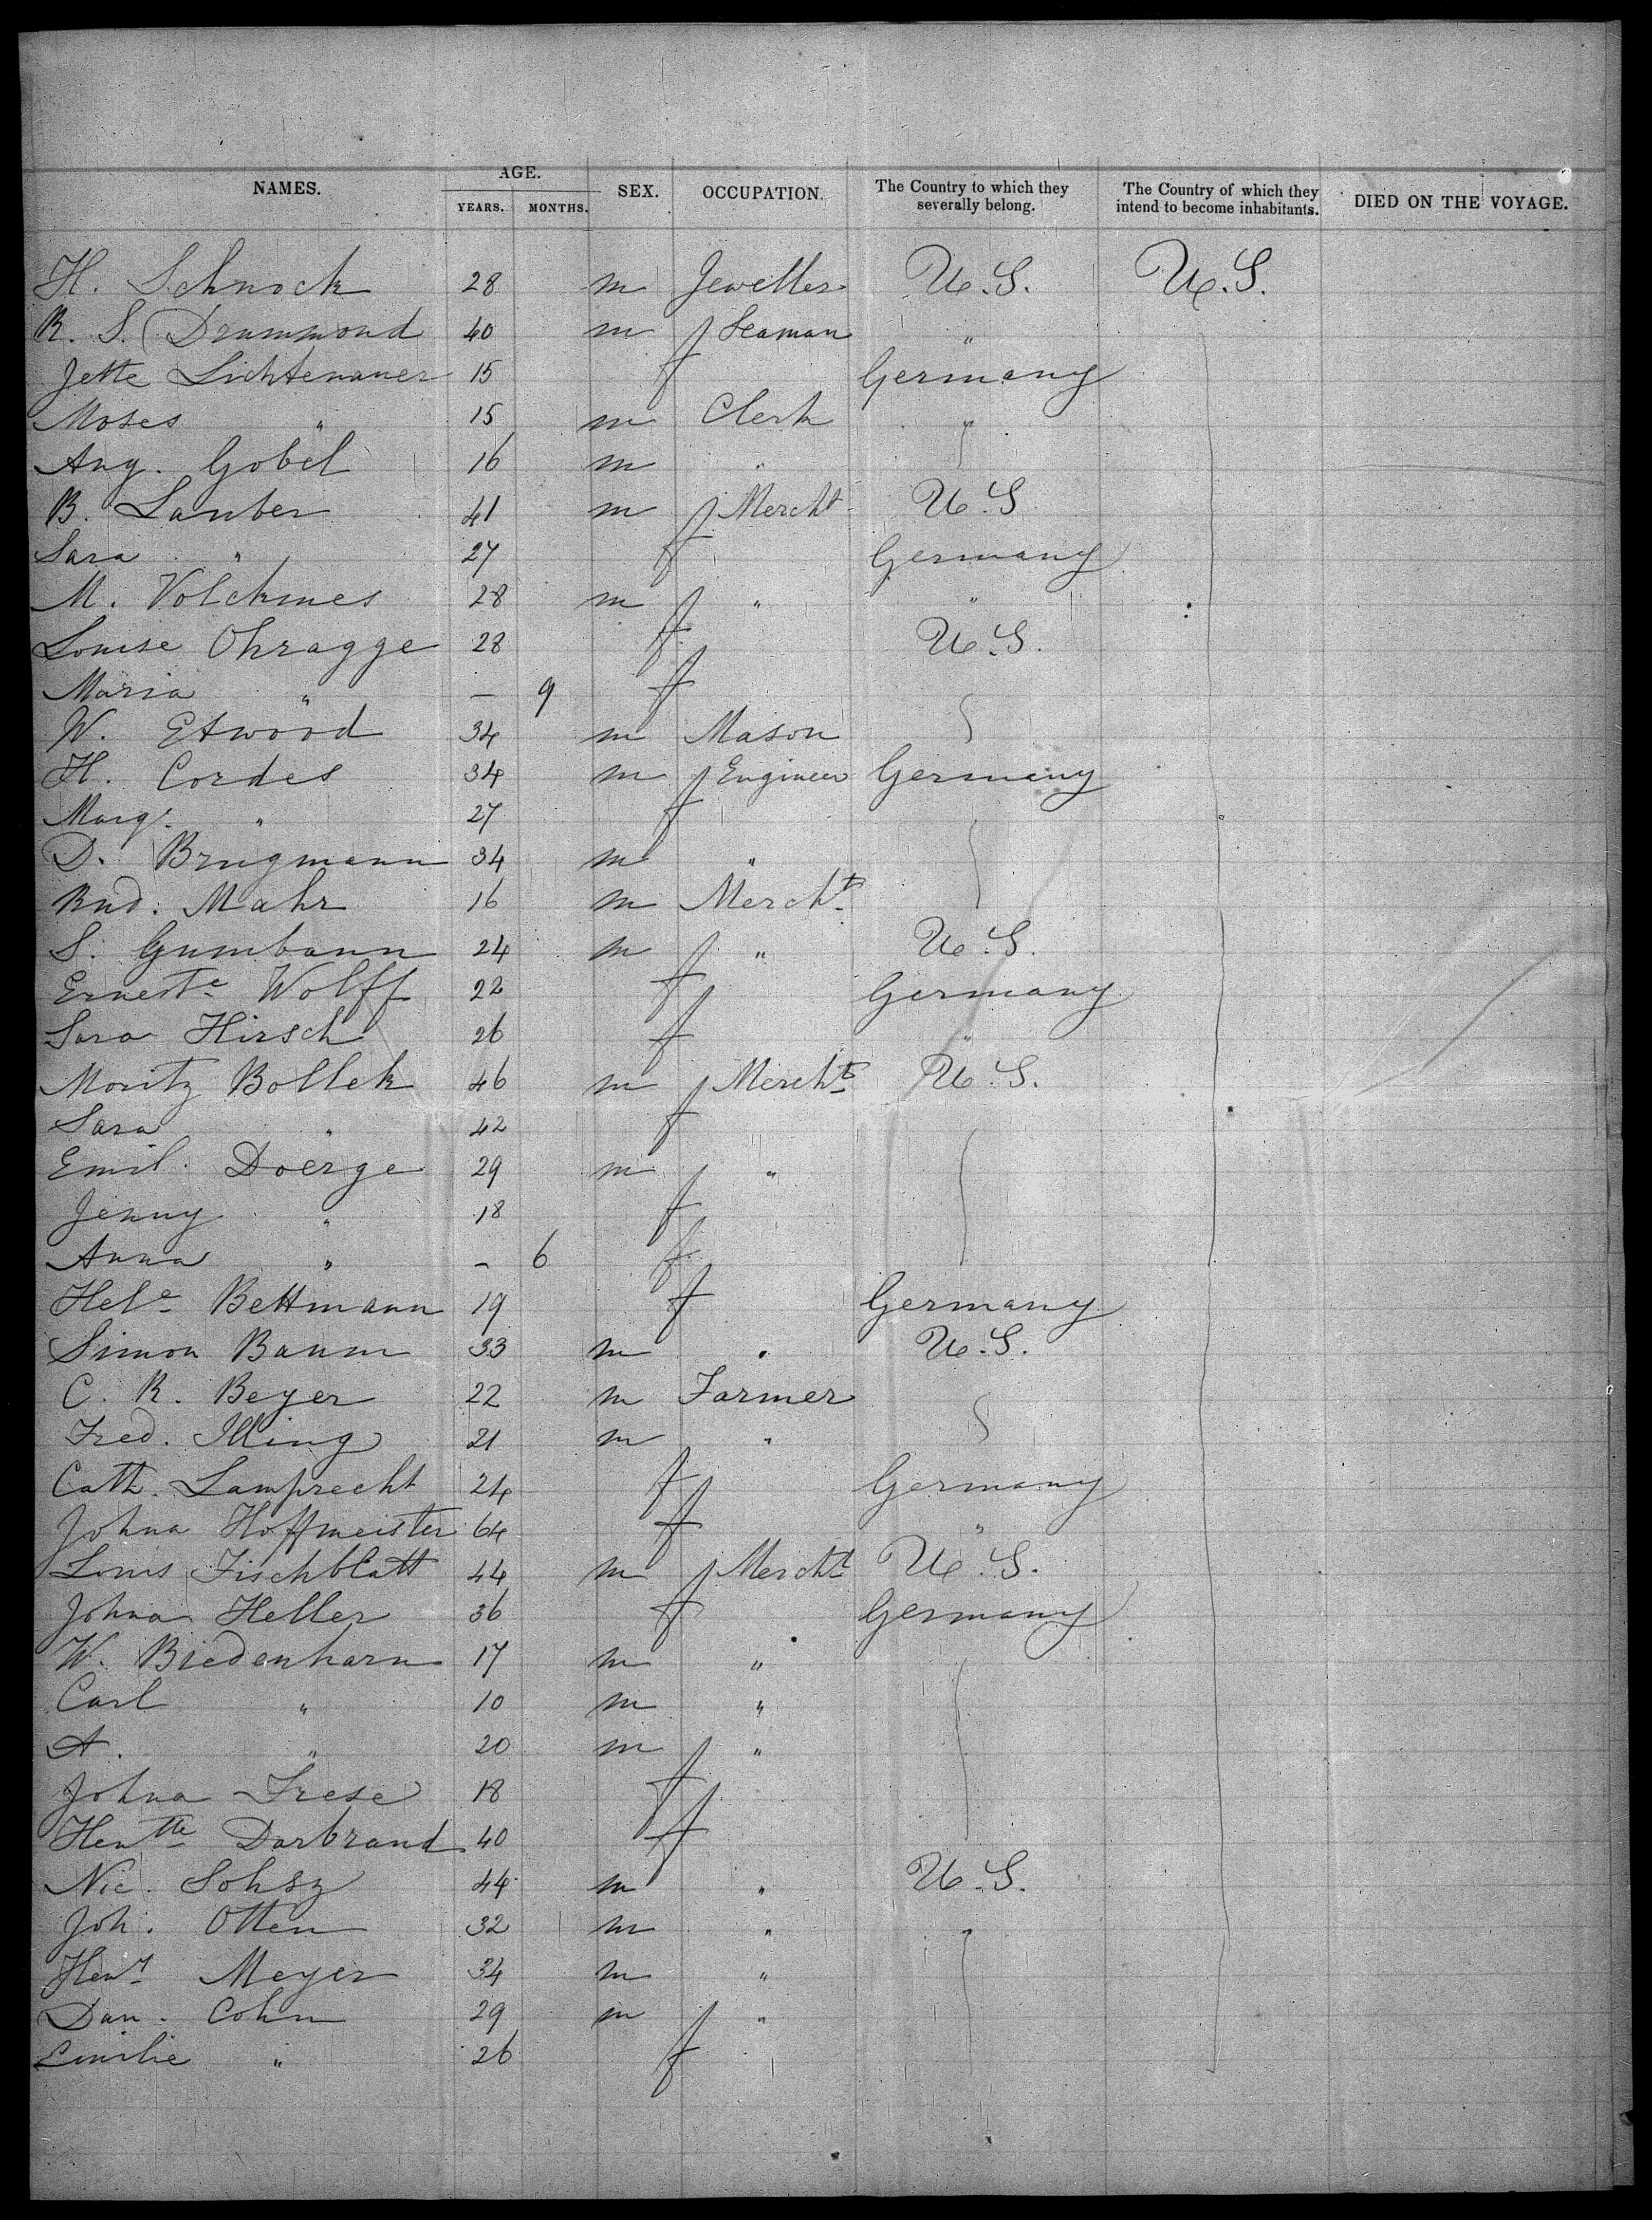 NAMES. AGE. SEX. OCCUPATION. The Country to which they severally belong. The Country of which they intend to become inhabitants. DIED ON THE VOYAGE.
YEARS. MONTHS.
H. Schnock 28 m Jeweller U.S. U.S.
R. S. Drummond 40 m Seaman "
Jette Lichtenauer 15 f Germany
Moses " 15 m Clerk "
Aug. Gobel 16 m "
B. Lauber 41 m Mercht U.S
Sara " 27 f Germany
M. Volckmes 28 m " "
Louise Ohragge 28 f U.S.
Maria " – 9 f
W. Etwood 34 m Mason
H. Cordes 34 m Engineer Germany
Margt. " 27 f
D. Brugmann 34 m "
Rud. Mahr 16 m Mercht
S. Gumbann 24 m " U.S.
Erneste Wolff 22 f Germany
Sara Hirsch 26 f "
Moritz Bollek 46 m Mercht U.S.
Sara " 42 f
Emil. Doerge 29 m "
Jenny " 18 f
Anna " – 6 f
Hele Bettmann 19 f Germany
Simon Baum 33 m " U.S.
C. R. Beyer 22 m Farmer
Fred. Illing 21 m "
Cath. Lamprecht 24 f Germany
Johna Hoffmeister 64 f "
Louis Fischblatt 44 m Mercht U.S.
Johna Heller 36 f Germany
W. Biedenharn 17 m "
Carl " 10 m "
A. " 20 m "
Johna Frese 18 f
Hentte Darbrand 40 f
Nic. Sohsz 44 m " U.S.
Joh. Otten 32 m " "
Heny Meyer 34 m "
Dan. Cohn 29 m "
Emilie " 26 f